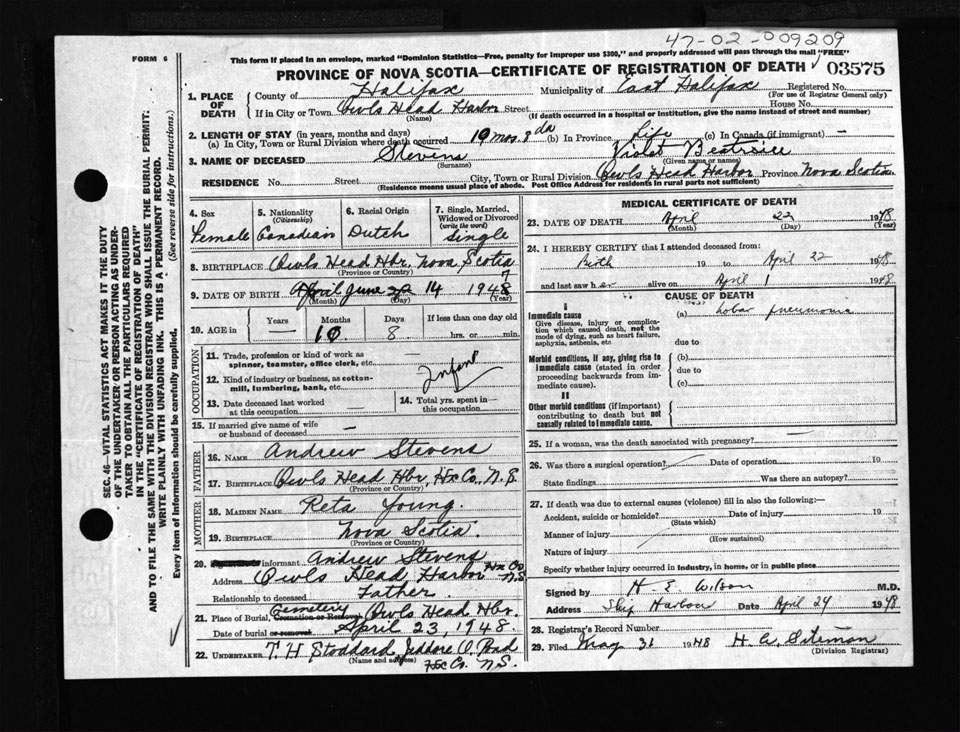 47-02-009209
FORM 6
This form if placed in an envelope, marked "Dominion Statistics—Free, penalty for improper use $300," and properly addressed will pass through the mail "FREE"
PROVINCE OF NOVA SCOTIA—CERTIFICATE OF REGISTRATION OF DEATH 03575
1. PLACE OF DEATH County of Halifax Municipality of East Halifax Registered No.
(For use of Registrar General only)
If in City or Town Owls Head Harbor Street House No.
(Name) (If death occurred in a hospital or institution, give the name instead of street and number)
2. LENGTH OF STAY (in years, months and days)
(a) In City, Town or Rural Division where death occurred 10 mos. 8 da (b) In Province Life (c) In Canada (if immigrant) —
3. NAME OF DECEASED Stevens Violet Beatrice
(Surname) (Given name or names)
RESIDENCE No. Street City, Town or Rural Division Owls Head Harbor Province Nova Scotia
(Residence means usual place of abode. Post Office Address for residents in rural parts not sufficient)
4. Sex Female
5. Nationality (Citizenship) Canadian
6. Racial Origin Dutch
7. Single, Married, Widowed or Divorced (write the word) Single
8. BIRTHPLACE Owls Head Hbr. Nova Scotia
(Province or County)
9. DATE OF BIRTH April June 22 14 1948 7
(Month) (Day) (Year)
10. AGE in Years Months Days If less than one day old
10 8 hrs. or min.
OCCUPATION
11. Trade, profession or kind of work as spinner, teamster, office clerk, etc.
Infant
12. Kind of industry or business, as cotton-mill, lumbering, bank, etc.
13. Date deceased last worked at this occupation —
14. Total yrs. spent in this occupation
15. If married give name of wife or husband of deceased —
FATHER
16. NAME Andrew Stevens
17. BIRTHPLACE Owls Head Hbr, Hx Co. N.S
(Province or Country)
MOTHER
18. MAIDEN NAME Reta Young.
19. BIRTHPLACE Nova Scotia.
(Province or Country)
20. informant Andrew Stevens
Address Owls Head Harbor Hx Co N.S
Relationship to deceased Father.
21. Place of Burial, Cremation or Removal Cemetery Owls Head Hbr.
Date of burial or removal April 23, 1948.
22. UNDERTAKER T. H Stoddard Jeddore O. Pond
(Name and address) Hx Co. N.S.
MEDICAL CERTIFICATE OF DEATH
23. DATE OF DEATH April 22 1948
(Month) (Day) (Year)
24. I HEREBY CERTIFY that I attended deceased from:
Birth 19 to April 22 1948
and last saw her alive on April 1 1948
CAUSE OF DEATH
I
Immediate cause (a) lobar pneumonia
Give disease, injury or complication which caused death, not the mode of dying, such as heart failure, asphyxia, asthenia, etc
due to
Morbid conditions, if any, giving rise to immediate cause (stated in order proceeding backwards from immediate cause). (b)
due to
(c)
II
Other morbid conditions (if important) contributing to death but not causally related to immediate cause.
25. If a woman, was the death associated with pregnancy? —
26. Was there a surgical operation? Date of operation 19
State findings Was there an autopsy?
27. If death was due to external causes (violence) fill in also the following:—
Accident, suicide or homicide? Date of injury 19
(State which)
Manner of injury
(How sustained)
Nature of injury
Specify whether injury occurred in Industry, in home, or in public place
Signed by H. E. Wilson M.D.
Address Ship Harbour Date April 24 1948
28. Registrar's Record Number
29. Filed May 31 1948 H. A. Siteman
(Division Registrar)
SEC. 46—VITAL STATISTICS ACT MAKES IT THE DUTY
OF THE UNDERTAKER OR PERSON ACTING AS UNDER-
TAKER TO OBTAIN ALL THE PARTICULARS REQUIRED
IN THE "CERTIFICATE OF REGISTRATION OF DEATH"
AND TO FILE THE SAME WITH THE DIVISION REGISTRAR WHO SHALL ISSUE THE BURIAL PERMIT:
WRITE PLAINLY WITH UNFADING INK. THIS IS A PERMANENT RECORD.
Every item of Information should be carefully supplied. (See reverse side for instructions.)